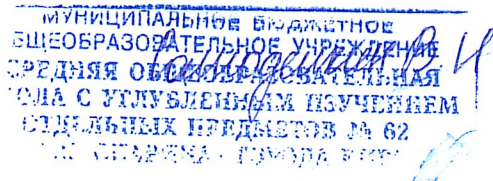 МУНИЦИПАЛЬНОЕ БЮДЖЕТНОЕ
БЩЕОБРАЗОВАТЕЛЬНОЕ УЧРЕЖДЕНИЕ
СРЕДНЯЯ ОБЩЕОБРАЗОВАТЕЛЬНАЯ
ОЛА С УГЛУБЛЕННЫМ ИЗУЧЕНИЕМ
ОТДЕЛЬНЫХ ПРЕДМЕТОВ № 62
ГОРОДА